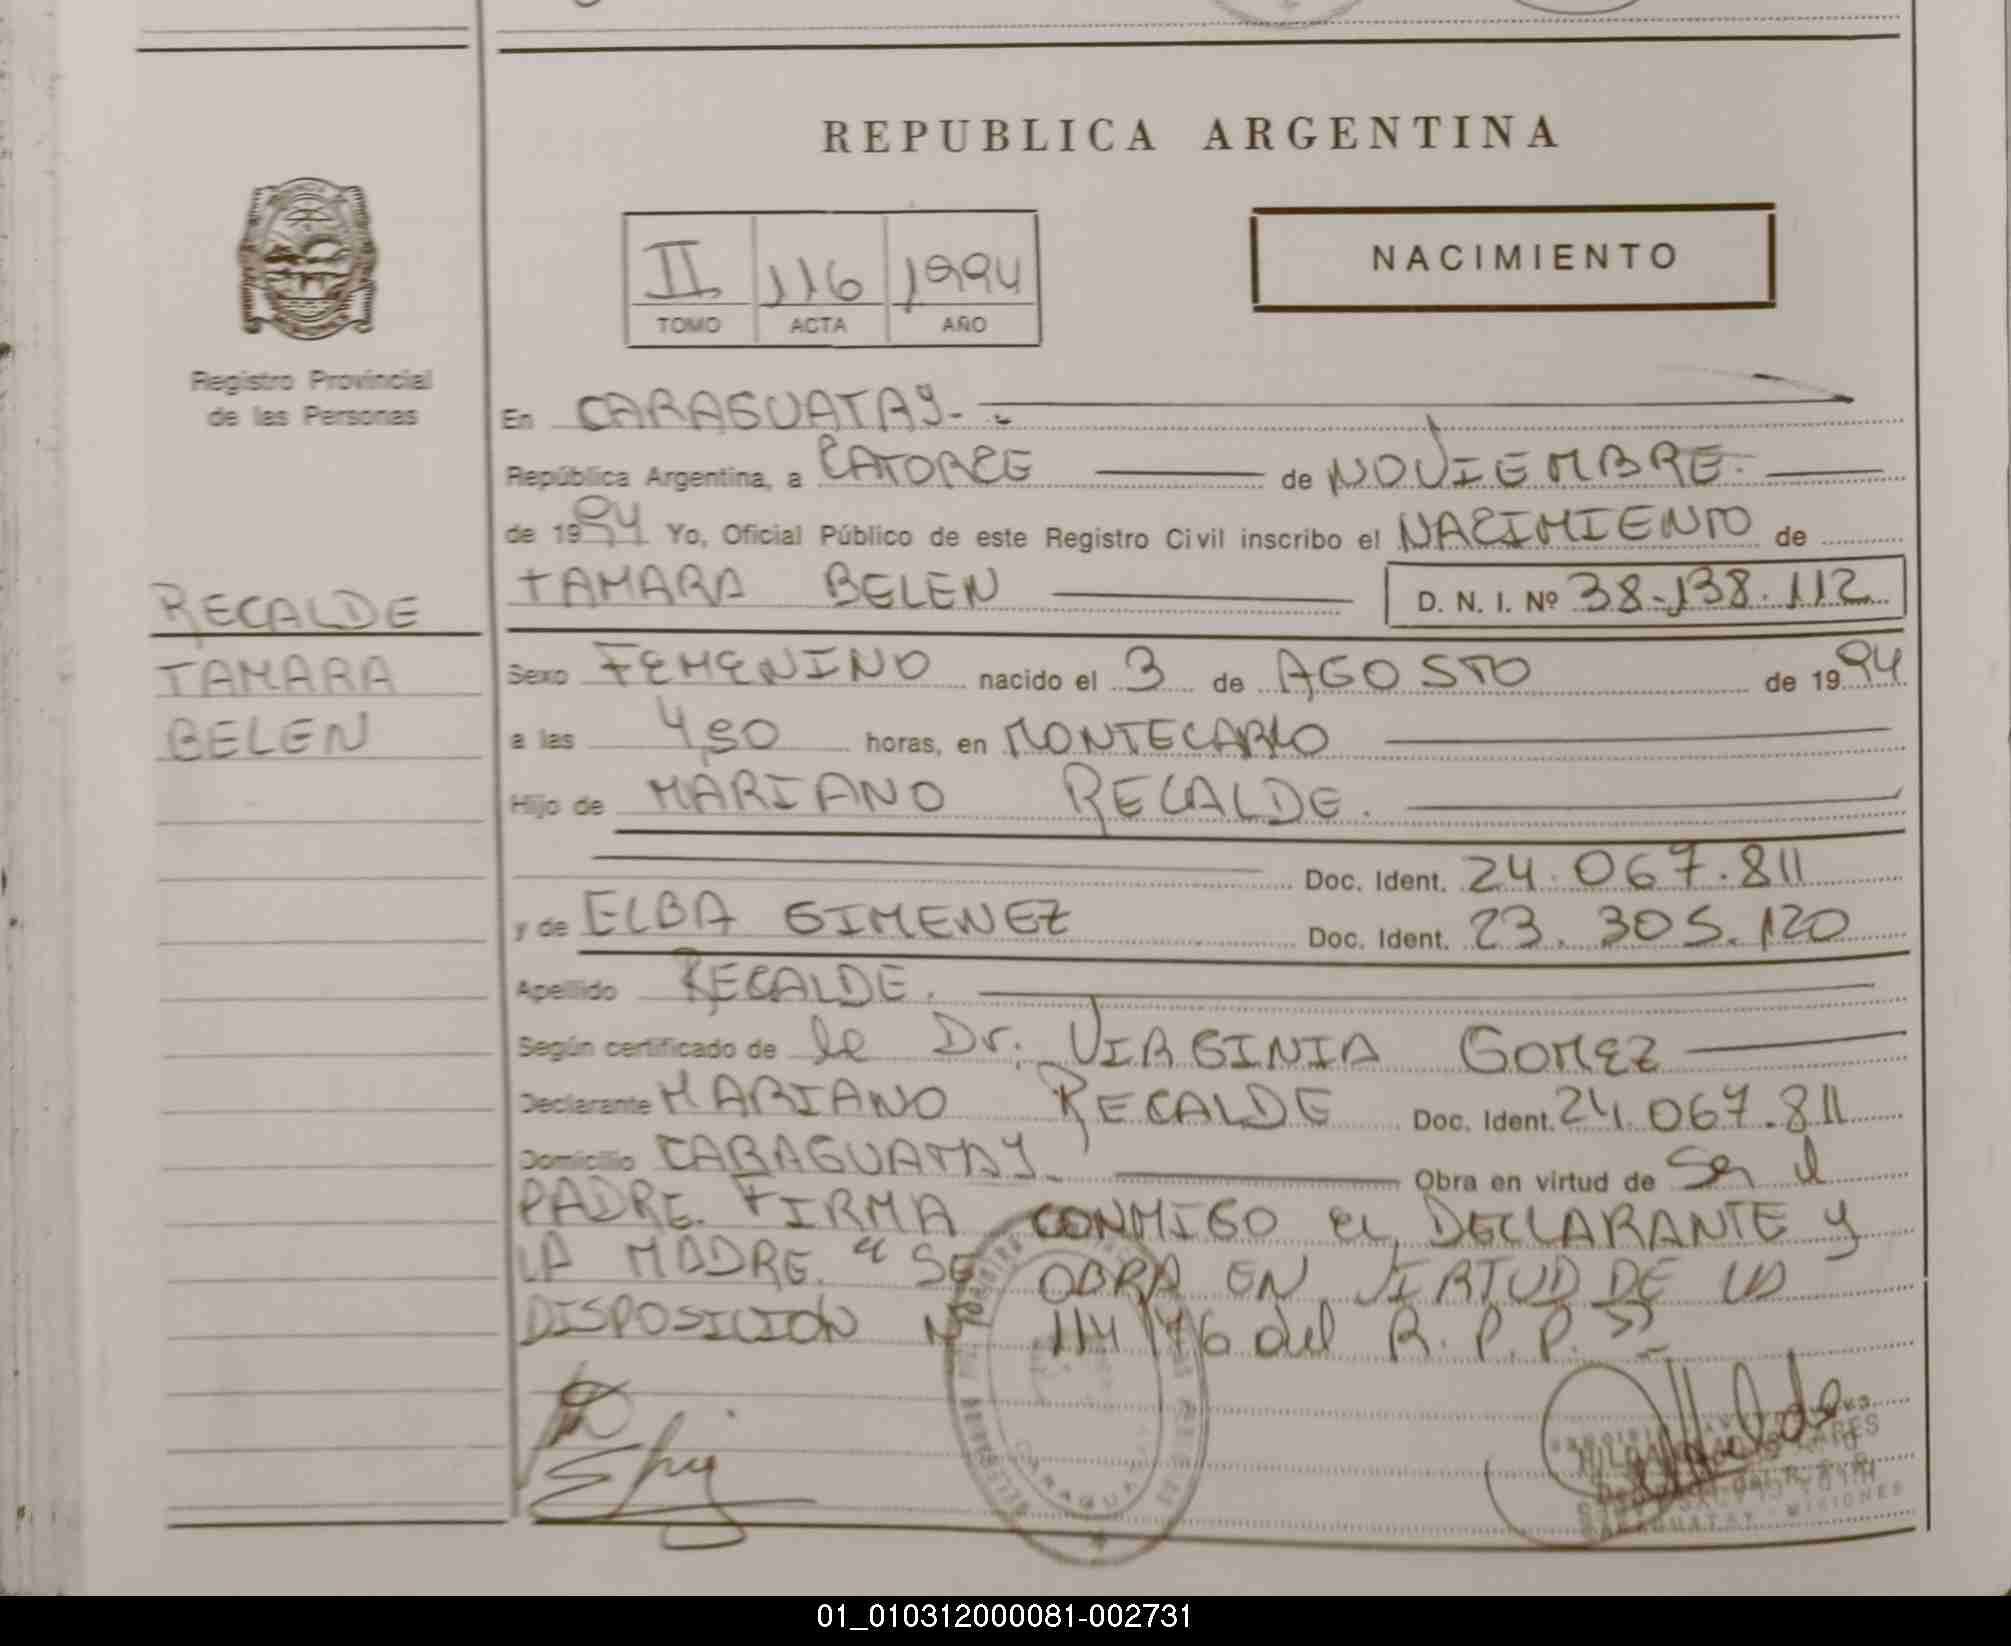 REPUBLICA ARGENTINA
II 116 1994
TOMO ACTA AÑO
NACIMIENTO
Registro Provincial
de las Personas
En CARAGUATAY.-
República Argentina, a CATORCE de NOVIEMBRE.
de 1994 Yo, Oficial Público de este Registro Civil inscribo el NACIMIENTO de
TAMARA BELEN D. N. I. Nº 38.138.112
RECALDE
TAMARA
BELEN
Sexo FEMENINO nacido el 3 de AGOSTO de 1994
a las horas, en MONTECARLO
Hijo de MARIANO RECALDE.
Doc. Ident. 24.067.811
y de ELBA GIMENEZ Doc. Ident. 23.305.120
Apellido RECALDE.
Según certificado de la Dr. VIRGINIA GOMEZ
Declarante MARIANO RECALDE Doc. Ident. 24.067.811
Domicilio CARAGUATAY Obra en virtud de Ser el
PADRE. FIRMA CONMIGO EL DECLARANTE Y
LA MADRE. "SE OBRA EN VIRTUD DE LA
DISPOSICION Nº 114/76 del R. P. P."
CARAGUATAY - MISIONES
01_010312000081-002731